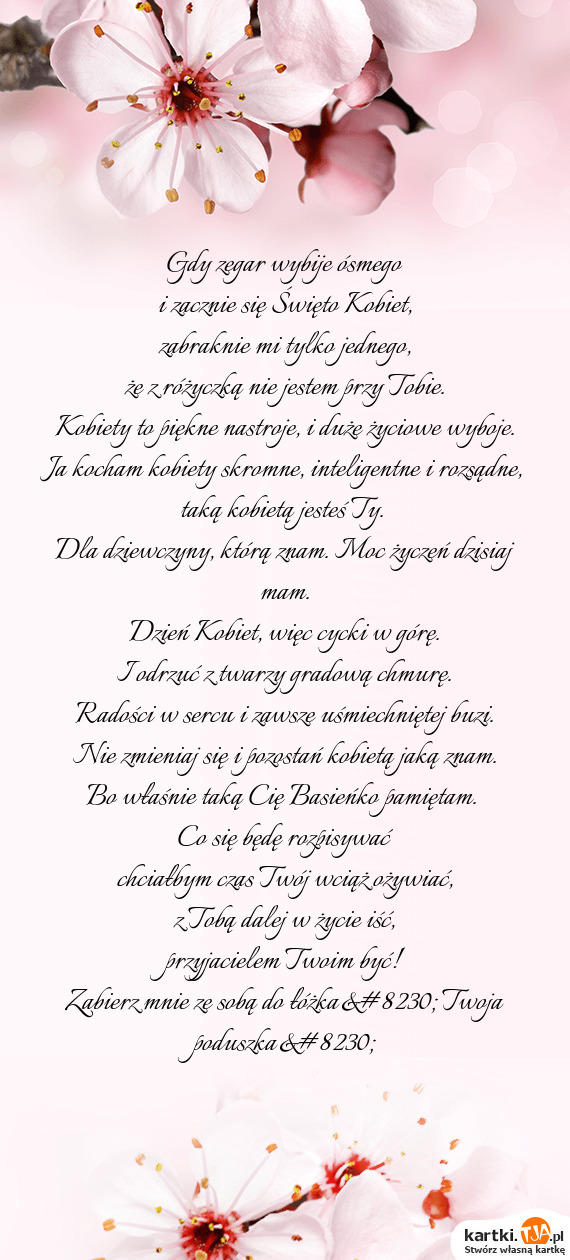 Gdy zegar wybije ósmego
i zacznie się Święto Kobiet,
zabraknie mi tylko jednego,
że z różyczką nie jestem przy Tobie.
Kobiety to piękne nastroje, i duże życiowe wyboje.
Ja kocham kobiety skromne, inteligentne i rozsądne,
taką kobietą jesteś Ty.
Dla dziewczyny, którą znam. Moc życzeń dzisiaj
mam.
Dzień Kobiet, więc cycki w górę.
I odrzuć z twarzy gradową chmurę.
Radości w sercu i zawsze uśmiechniętej buzi.
Nie zmieniaj się i pozostań kobietą jaką znam.
Bo właśnie taką Cię Basieńko pamiętam.
Co się będę rozpisywać
chciałbym czas Twój wciąż ożywiać,
z Tobą dalej w życie iść,
przyjacielem Twoim być!
Zabierz mnie ze sobą do łóżka &#8230; Twoja
poduszka &#8230;
kartki.TJA.pl
Stwórz własną kartkę